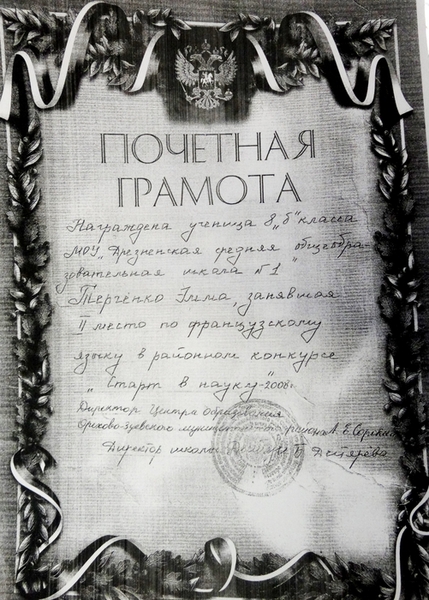 ПОЧЕТНАЯ
ГРАМОТА
Награждена ученица 8 „б" класса
МОУ „Дрезненская средняя общеобра-
зовательная школа №1"
занявшая
II место по французскому
языку в районном конкурсе
„Старт в науку"-2008г.
Директор Центра образования
Орехово-Зуевского района А. Е.
Директор школы